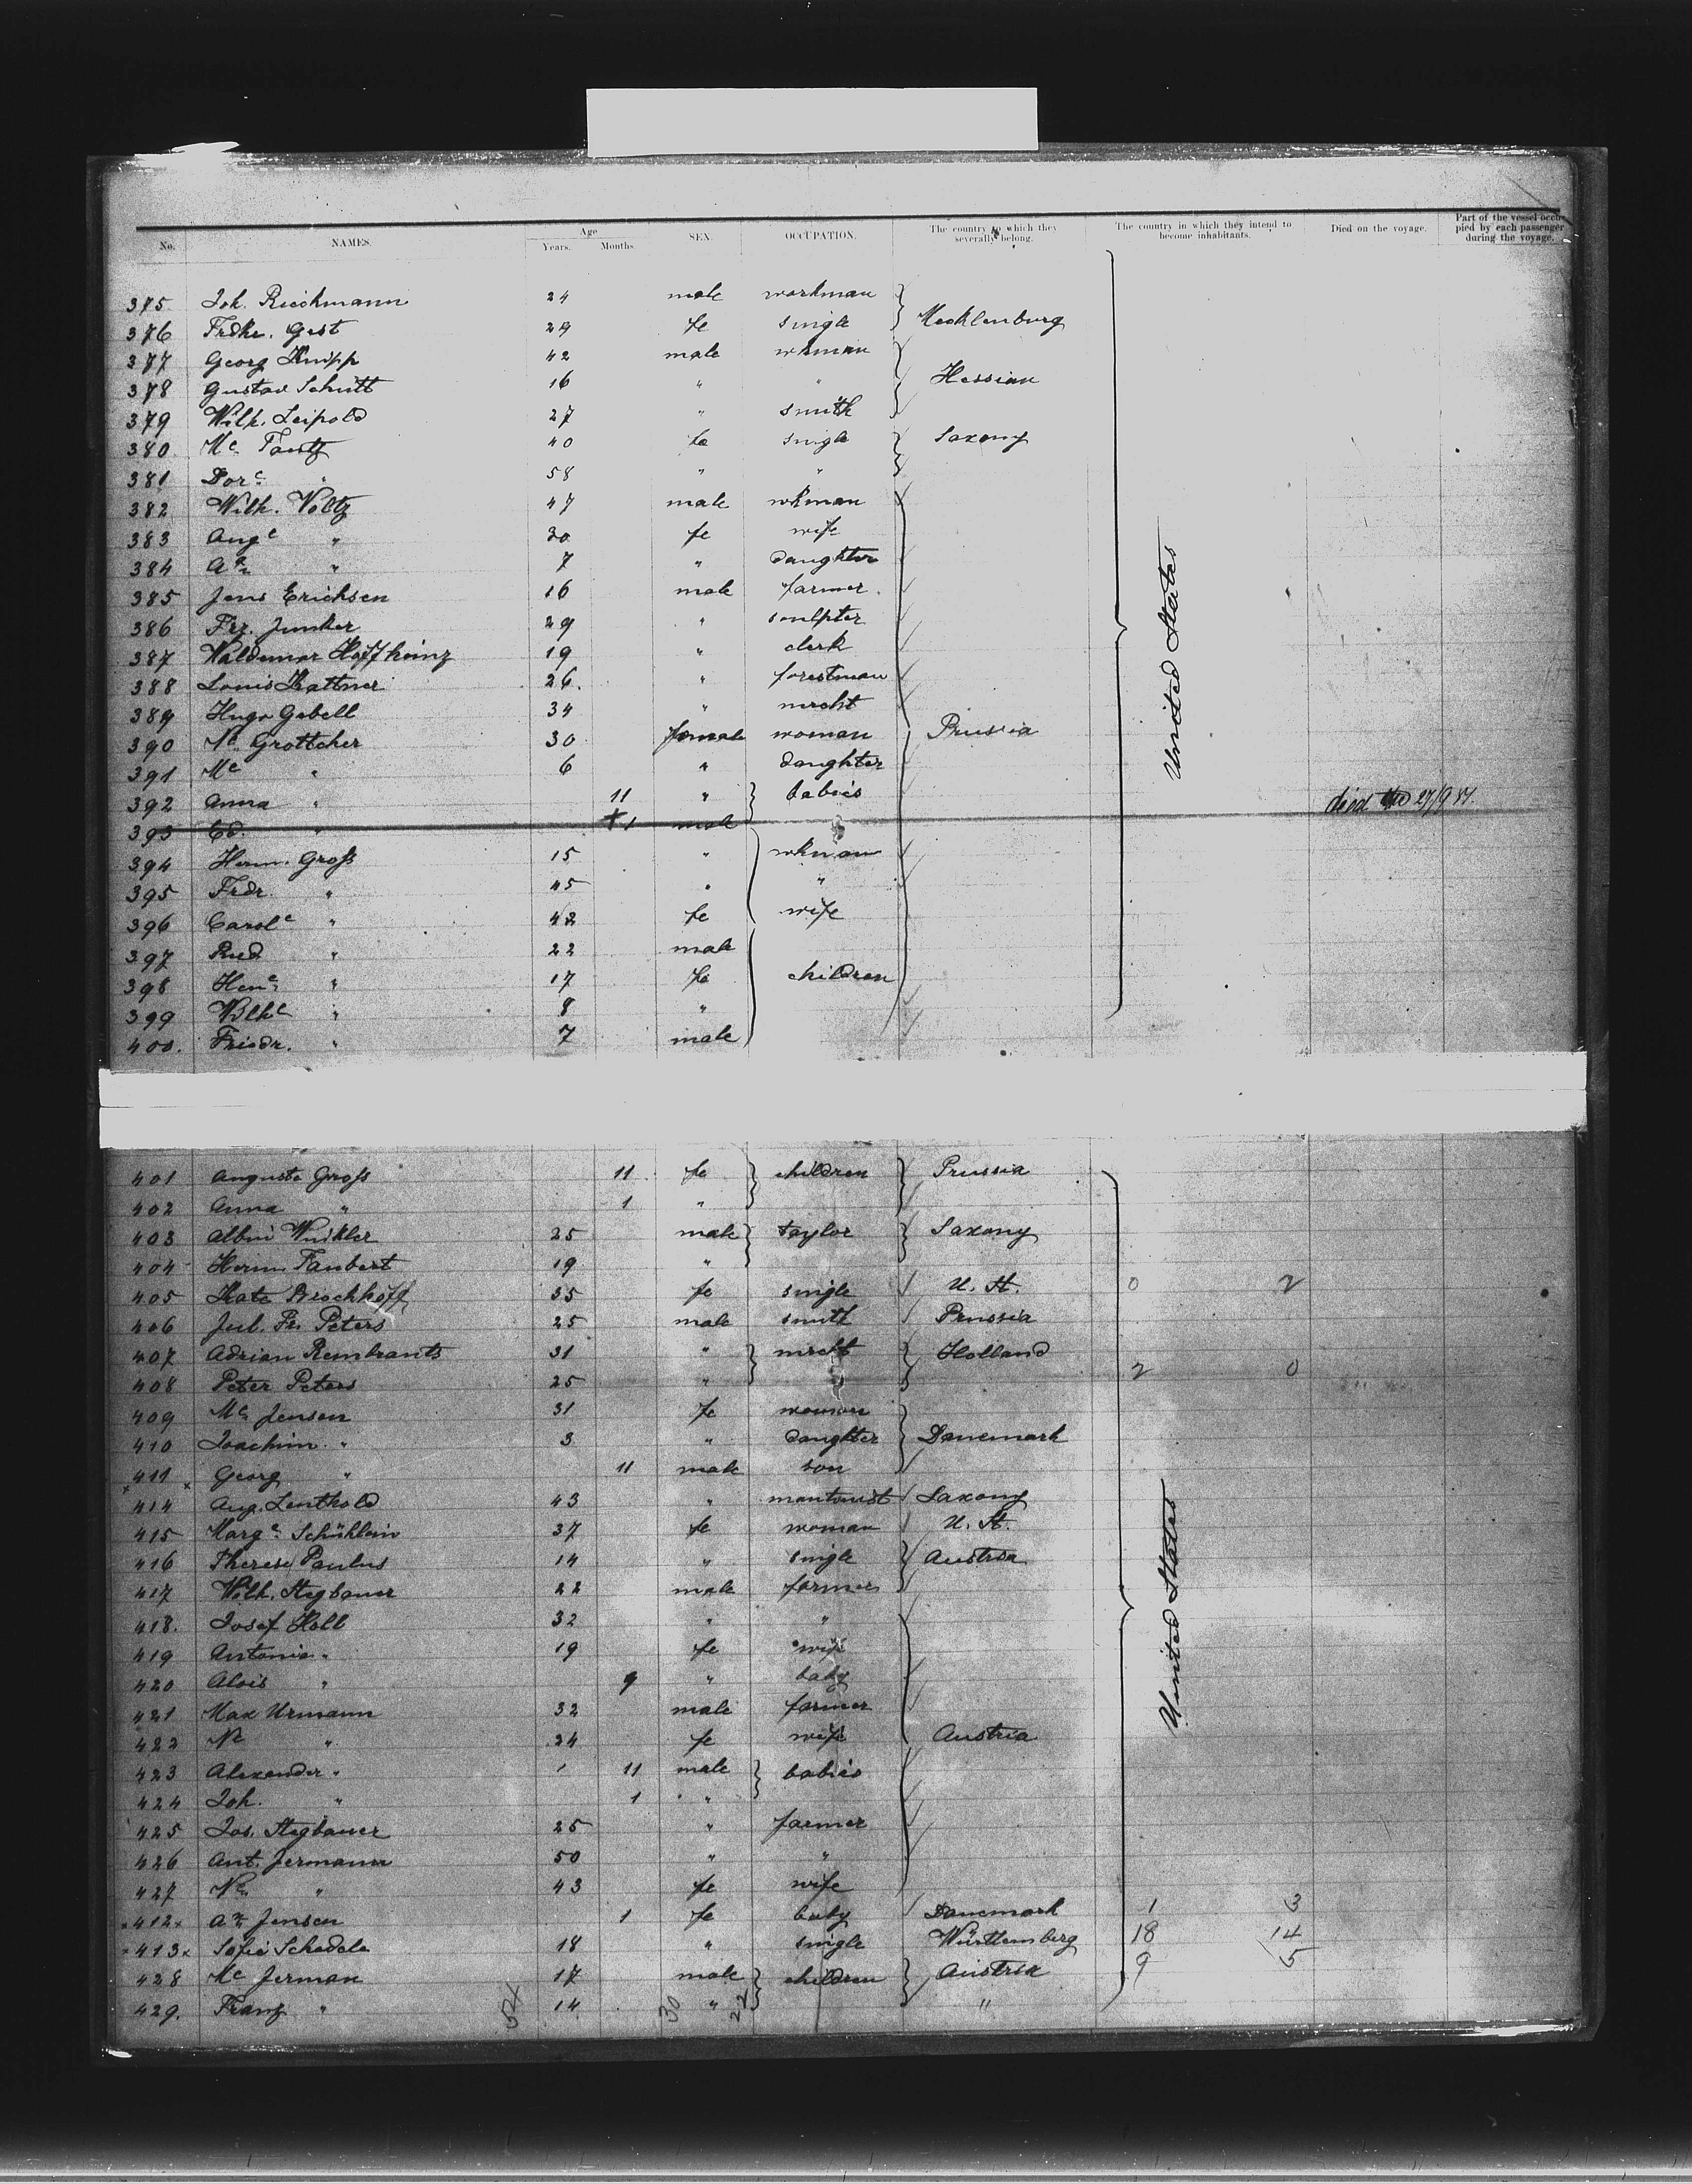 No. NAMES. Age Years. Months. SEX. OCCUPATION. The country to which they severally belong. The country in which they intend to become inhabitants. Died on the voyage. Part of the vessel occupied by each passenger during the voyage.
375. Joh. Rieckmann 24 male workman
376 Fredke. Gest 29 fe single Mecklenburg
377 Georg Knipp 42 male wkman
378 Gustav Schütt 16 " " Hessian
379 Wilh. Leipold 27 " smith
380. Mc Tantz 40 fe single Saxony
381 Dorc " 58 " "
382 Wilh. Voltz 47 male wkman
383 Augc " 30 fe wife
384 An " 7 " daughter
385 Jens Erichsen 16 male farmer.
386 Frz. Junker 29 " sculpter
387 Waldemar Hoffheinz 19 " clerk
388 Louis Kattner 26. " forestman
389 Hugo Gabell 34 " mercht
390 Nc Grottcher 30 female woman Prussia
391 Mc " 6 " daughter
392 Anna " 11 " babies
393 Ed. " 1 male died 27/9 81.
394 Herm. Groß 15 " wkman
395 Frdr. " 45 " "
396 Carolc " 42 fe wife
397 Rud " 22 male
398 Henc " 17 fe children
399 Wilhc " 8 "
400. Friedr. " 7 male
United States
401 Auguste Groß 11 fe children Prussia
402 Anna " 1 "
403 Albin Winkler 25 male taylor Saxony
404 Herm. Taubert 19 "
405 Kate Brockhoff 35 fe single U. St. 0 2
406 Jul. Fr. Peters 25 male smith Prussia
407 Adrian Rembrants 31 " mercht Holland
408 Peter Peters 25 " 2 0
409 Mc Jensen 31 fe woman
410 Joachim. " 3 " daughter Danemark
411 Georg " 11 male son
414 Aug. Leuthold 43 " Saxony
415 Margc Schühlein 37 fe woman U. St.
416 Therese Paulus 14 " single Austria
417 Wilh. Stegbauer 22 male farmer
418. Josef Holl 32 " "
419 Antonia " 19 fe wife
420 Alois " 9 " baby
421 Max Urmann 32 male farmer
422 Nc " 24 fe wife Austria
423 Alexander " 11 male babies
424 Joh. " 1 "
425 Jos. Stegbauer 25 " farmer
426 Ant. Jermann 50 " "
427 Nc " 43 fe wife
412 An Jensen 1 fe baby Danemark 1 3
413 Sofie Schadele 18 " single Württemberg 18 14
428 Mc Jerman 17 male children Austria 9 5
429. Franz " 14 " "
United States
52 30 22